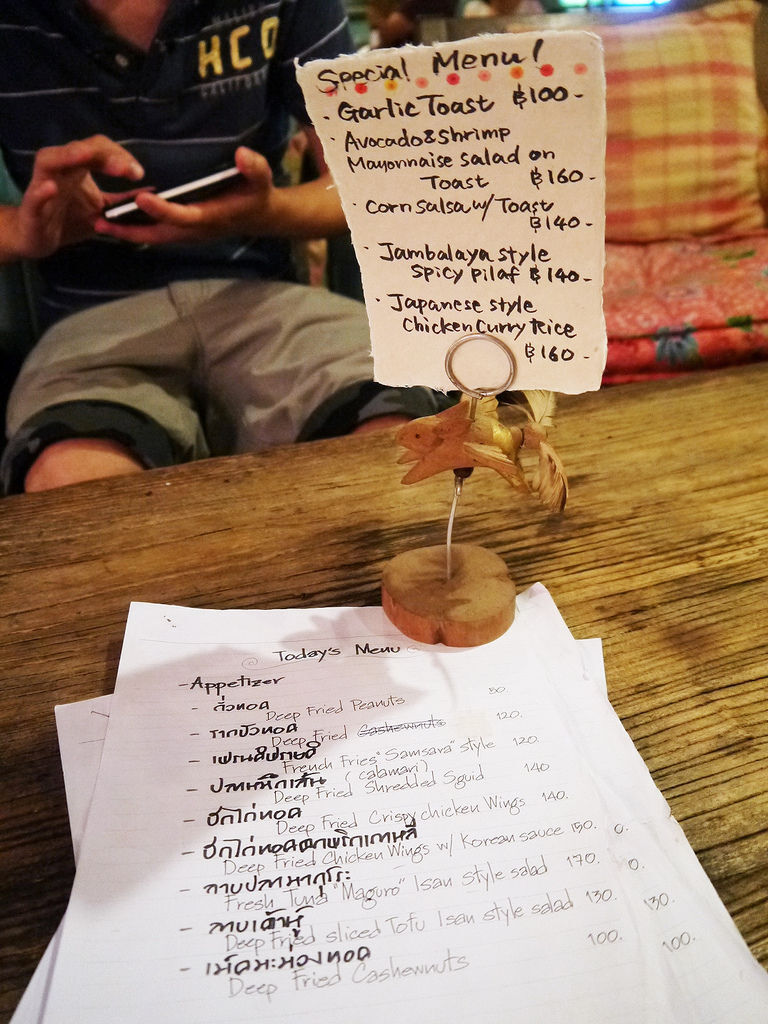 HCO
CALIFORNIA
Special Menu!
· Garlic Toast ฿100-
· Avocado & Shrimp
Mayonnaise Salad on
Toast ฿160-
· Corn Salsa w/ Toast
฿140-
· Jambalaya style
Spicy Pilaf ฿140-
· Japanese style
Chicken Curry Rice
฿160-
Today's Menu
- Appetizer
- ถั่วทอด
Deep Fried Peanuts 80.
- รากบัวทอด
Deep Fried Cashewnuts 120.
- เฟรนส์ปรายด์
French Fries "Samsara" style 120.
- ปลาหมึกเส้น (calamari)
Deep Fried Shredded Sguid 140
- ปีกไก่ทอด
Deep Fried Crispy chicken Wings 140.
- ปีกไก่ทอดคลุกพริกเกาหลี
Deep Fried Chicken Wings w/ Korean sauce 150. 0.
- ลาบปลามากุโระ
Fresh Tuna "Maguro" Isan style salad 170. 0.
- ลาบเต้าหู้
Deep Fried sliced Tofu Isan style salad 130. 130.
- เม็ดมะม่วงทอด
Deep Fried Cashewnuts 100. 100.